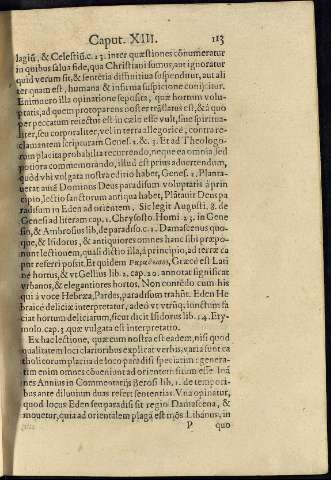 Caput. XIII. 113
lagiũ, & Celestiũ. c. 23. inter quæstiones cõnumeratur
in quibus salua fide, qua Christiani sumus, aut ignoratur
quid verum sit, & sentẽtia diffinitiua suspenditur, aut ali
ter quam est, humana & infirma suspicione conijcitur.
Enimuero illa opinatione seposita, quæ hortum volu-
ptatis, ad quem protoparens noster trãslatus est, & à quo
per peccatum reiectus est in cælo esse vult, siue spiritua-
liter, seu corporaliter, vel in terra allegoricè, contra re-
clamantem scripturam Genes. 1. & 3. Et ad Theologo-
rum placita probabilia recurrendo, neque ea omnia, sed
potiora commemorando, illud est prius aduertendum,
quòd vbi vulgata nostra editio habet, Genes. 2. Planta-
uerat autẽ Dominus Deus paradisum voluptatis à prin
cipio, lectio sanctorum antiqua habet, Plãtauit Deus pa
radisum in Eden ad orientem. Sic legit August. 8. de
Genesi ad literam cap. 1. Chrysosto. Homi. 23. in Gene
sin, & Ambrosius lib, de paradiso. c. 1. Damascenus quo-
que, & Isidorus, & antiquiores omnes hanc sibi præpo-
nunt lectionem, quasi dictio illa, à principio, ad terræ ca
put referri possit. Et quidem Græcè est Lati
nè hortus, & vt Gellius lib. 2. cap. 20. annotat significat
vrbanos, & elegantiores hortos. Non concedo cum his
qui à voce Hebræa, Pardes, paradisum trahũt. Eden He
braicè deliciæ interpretatur, adeò vt vtrũq; iunctũ fa
ciat hortum deliciarum, sicut dicit Isidorus lib. 14. Ety-
molo. cap. 3. quæ vulgata est interpretatio.
Ex hac lectione, quæ cum nostra est eadem, nisi quod
qualitatem loci clarioribus explicat verbis, varia sunt ca
tholicorum placita de loco paradisi speciatim: genera-
tim enim omnes cõueniunt ad orientem situm esse. Ioã
nes Annius in Commentarijs Berosi lib. 1. de tempori-
bus ante diluuium duas refert sententias. Vna opinatur,
quod locus Eden seu paradisi sit regio Damascena, &
mouetur, quia ad orientalem plagã est mõs Libanus, in
P quo